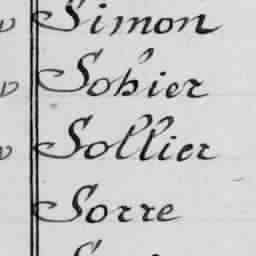 Simon
Sohier
Sollier
Sorre